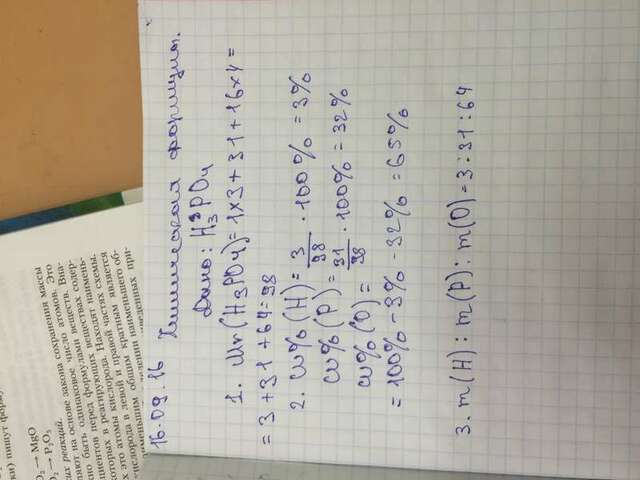 O₂ → MgO
O₂ → P₂O₅
ких реакций.
ляют на основе закона сохранения массы
но быть одинаковое число атомов. Это
циентов перед формулами веществ. Вна-
которых в реагирующих веществах содер-
х это атомы кислорода. Находят наимень-
кислорода в левой и правой частях схемы.
наименьшим общим кратным является
16.09.16
Химическая формулы.
Дано: H₃PO₄
1. Mr(H₃PO₄) = 1×3 + 31 + 16×4 =
= 3 + 31 + 64 = 98
2. ω%(H) = 3/98 · 100% = 3%
ω%(P) = 31/98 · 100% = 32%
ω%(O) =
= 100% - 3% - 32% = 65%
3. m(H) : m(P) : m(O) = 3 : 31 : 64